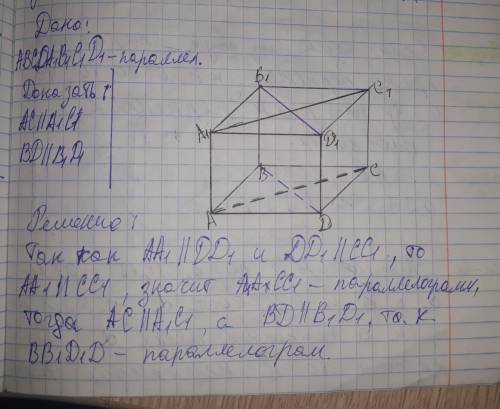 Дано:
ABCDA1B1C1D1-параллел.
Доказать:
AC||A1C1
BD||B1D1
B1
C1
A1
D1
B
C
A
D
Решение:
Так как AA1||DD1 и DD1||CC1, то
AA1||CC1, значит AA1CC1-параллелограмм,
тогда AC||A1C1, а BD||B1D1, т.к
BB1D1D-параллелограм.